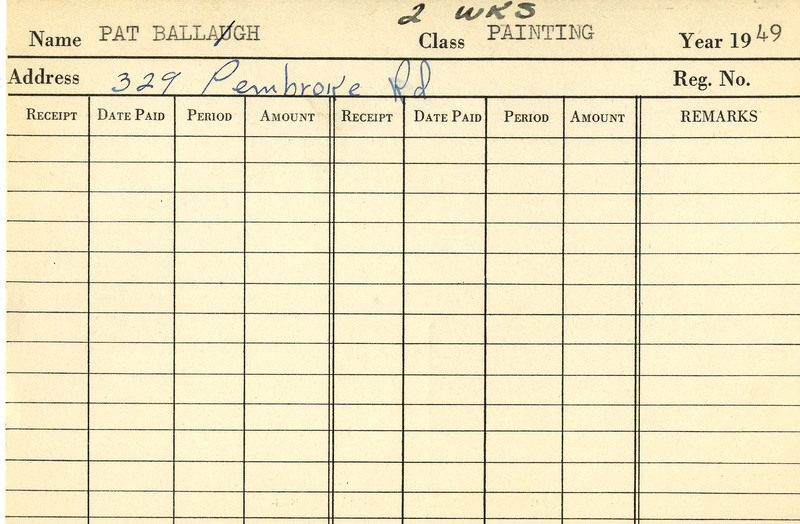 2 WKS
Name PAT BALLAUGH Class PAINTING Year 1949
Address 329 Pembroke Rd Reg. No.
RECEIPT DATE PAID PERIOD AMOUNT RECEIPT DATE PAID PERIOD AMOUNT REMARKS